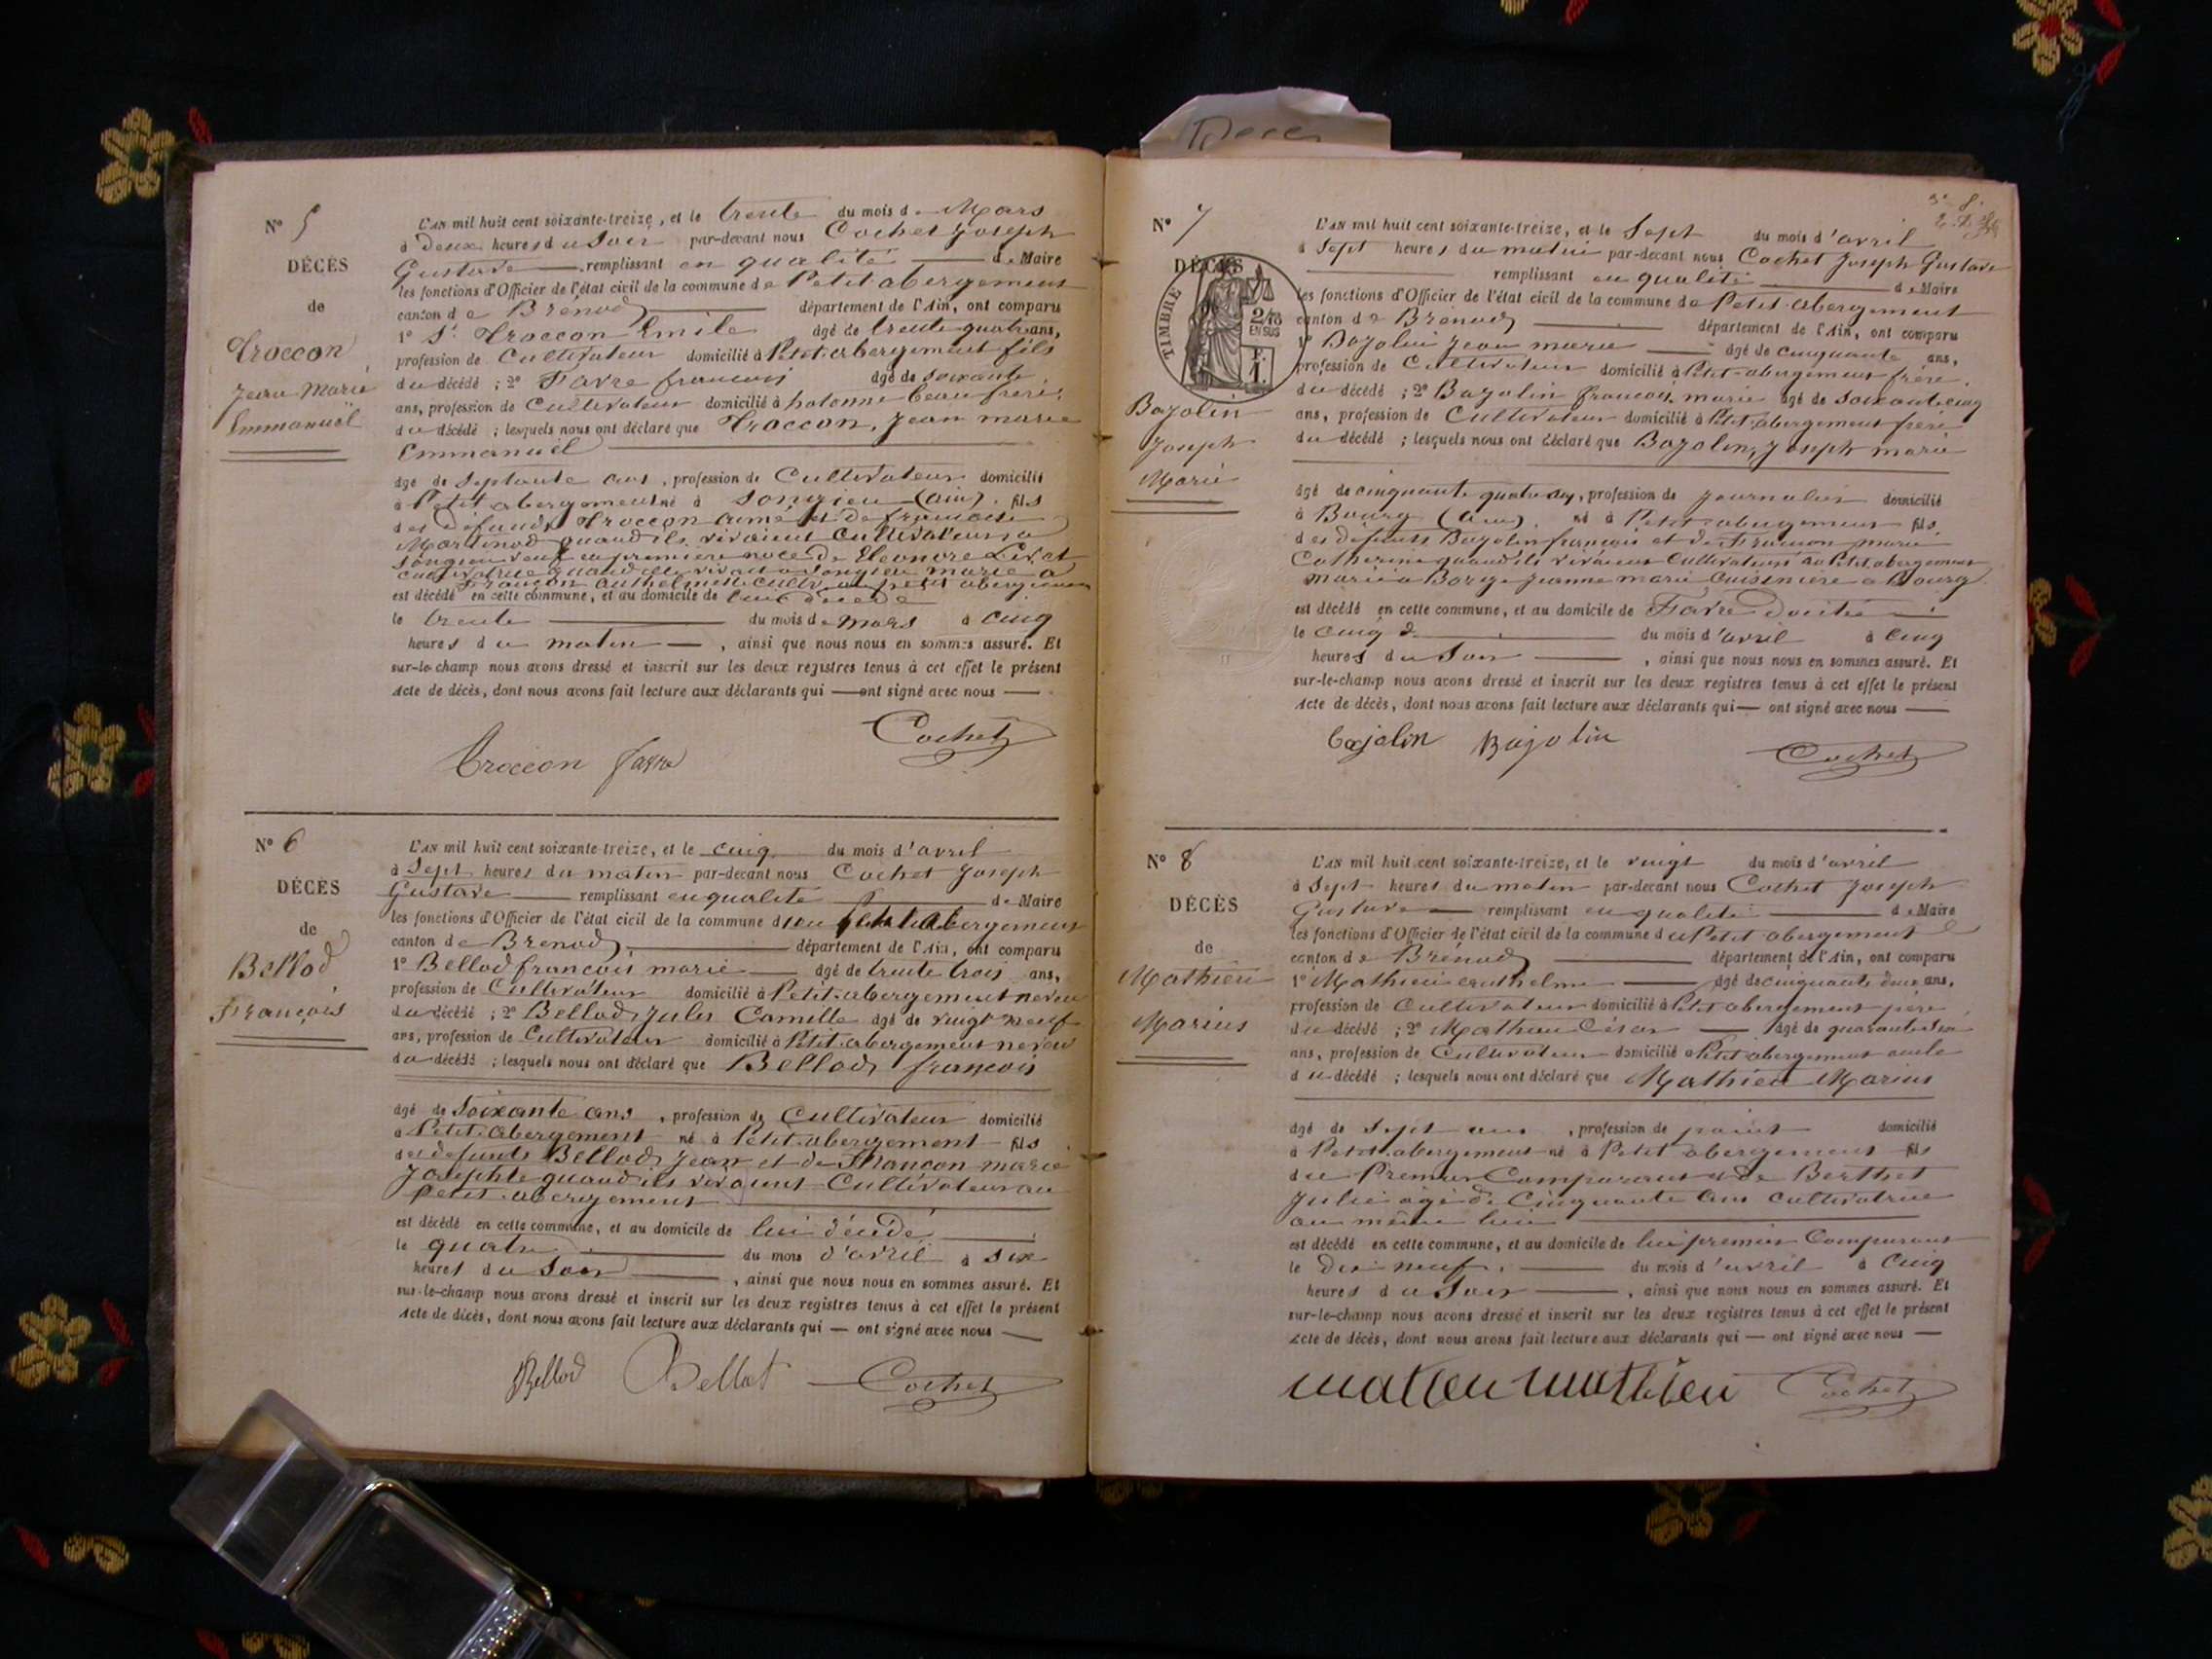 N° 5
DÉCÈS
de
Troccon
Jean Marie
Emmanuel
L'AN mil huit cent soixante-treize, et le trente du mois de Mars
à deux heures du Soir par-devant nous Cochet Joseph
Gustave remplissant en qualité de Maire
les fonctions d'Officier de l'état civil de la commune de Petit abergement
canton de Brenod département de l'Ain, ont comparu
1° Sr Troccon Emile âgé de trente quatre ans,
profession de Cultivateur domicilié à Petit-abergement fils
du décédé ; 2° Favre francois âgé de soixante
ans, profession de Cultivateur domicilié à hotonne beau frère
du décédé ; lesquels nous ont déclaré que Troccon, Jean marie
Emmanuel
âgé de Septante ans, profession de Cultivateur domicilié
à Petit abergement né à Songieu (ain). fils
des défunts Troccon aimé et de francoise
Martinod quand ils vivaient Cultivateurs a
Songieu veuf en première noce de Eleonore
Cultivatrice quand elle vivait a Songieu marié a
est décédé en cette commune, et au domicile de lui décédé
le trente du mois de mars à cinq
heures du matin, ainsi que nous nous en sommes assuré. Et
sur-le-champ nous avons dressé et inscrit sur les deux registres tenus à cet effet le présent
Acte de décès, dont nous avons fait lecture aux déclarants qui ont signé avec nous
Cochet
Troccon favre
N° 6
DÉCÈS
de
Bellod
François
L'AN mil huit cent soixante-treize, et le cinq du mois d'avril
à Sept heures du matin par-devant nous Cochet Joseph
Gustave remplissant en qualité de Maire
les fonctions d'Officier de l'état civil de la commune du petit abergement
canton de Brenod département de l'Ain, ont comparu
1° Bellod francois marie âgé de trente trois ans,
profession de Cultivateur domicilié à Petit-abergement neveu
du décédé ; 2° Bellod, Jules Camille âgé de vingt neuf
ans, profession de Cultivateur domicilié à Petit-abergement neveu
du décédé ; lesquels nous ont déclaré que Bellod, françois
âgé de Soixante ans, profession de Cultivateur domicilié
à Petit-abergement né à Petit-abergement fils
des defunts Bellod, Jean et de Francon marie
Josephte quand ils vivaient Cultivateurs au
Petit abergement
est décédé en cette commune, et au domicile de lui décédé
le quatre du mois d'avril à six
heures du Soir, ainsi que nous nous en sommes assuré. Et
sur-le-champ nous avons dressé et inscrit sur les deux registres tenus à cet effet le présent
Acte de décès, dont nous avons fait lecture aux déclarants qui — ont signé avec nous
Bellod Bellod Cochet
Décès
N° 7
DÉCÈS
TIMBRE
2/10
EN SUS
Bozolin
Joseph
Marie
L'AN mil huit cent soixante-treize, et le Sept du mois d'avril
à Sept heures du matin par-devant nous Cochet Joseph Gustave
remplissant en qualité de Maire
les fonctions d'Officier de l'état civil de la commune de Petit-abergement
canton de Brenod département de l'Ain, ont comparu
1° Bozolin Jean marie âgé de cinquante ans,
profession de Cultivateur domicilié à Petit-abergement frère
du décédé ; 2° Bozolin francois marie âgé de soixante cinq
ans, profession de Cultivateur domicilié à Petit-abergement frère
du décédé ; lesquels nous ont déclaré que Bozolin, Joseph marie
âgé de cinquante quatre ans, profession de Journalier domicilié
à Bourg (ain). né à Petit-abergement fils
des défunts Bozolin francois et de Francon marie
Catherine quand ils vivaient Cultivateurs au Petit abergement
marié a Borge Jeanne marie Cuisinière a Bourg
est décédé en cette commune, et au domicile de Favre
le cinq du mois d'avril à cinq
heures du Soir, ainsi que nous nous en sommes assuré. Et
sur-le-champ nous avons dressé et inscrit sur les deux registres tenus à cet effet le présent
Acte de décès, dont nous avons fait lecture aux déclarants qui — ont signé avec nous
Bajolin Bajolin
Cochet
N° 8
DÉCÈS
de
Mathieu
Marius
L'AN mil huit cent soixante-treize, et le vingt du mois d'avril
à Sept heures du matin par-devant nous Cochet Joseph
Gustave remplissant en qualité de Maire
les fonctions d'Officier de l'état civil de la commune de Petit abergement
canton de Brénod département de l'Ain, ont comparu
1° Mathieu anthelme âgé de cinquante deux ans,
profession de Cultivateur domicilié à Petit abergement père
du décédé ; 2° Mathieu César âgé de quarante six
ans, profession de Cultivateur domicilié à Petit abergement oncle
du décédé ; lesquels nous ont déclaré que Mathieu Marius
âgé de Sept ans, profession de point domicilié
à Petit-abergement né à Petit abergement fils
du Premier Comparant et de Berthet
Julie agée de Cinquante ans cultivatrice
au même lieu
est décédé en cette commune, et au domicile de lui premier Comparant
le dix neuf du mois d'avril à Cinq
heures du Soir, ainsi que nous nous en sommes assuré. Et
sur-le-champ nous avons dressé et inscrit sur les deux registres tenus à cet effet le présent
Acte de décès, dont nous avons fait lecture aux déclarants qui — ont signé avec nous
matieu mathieu Cochet